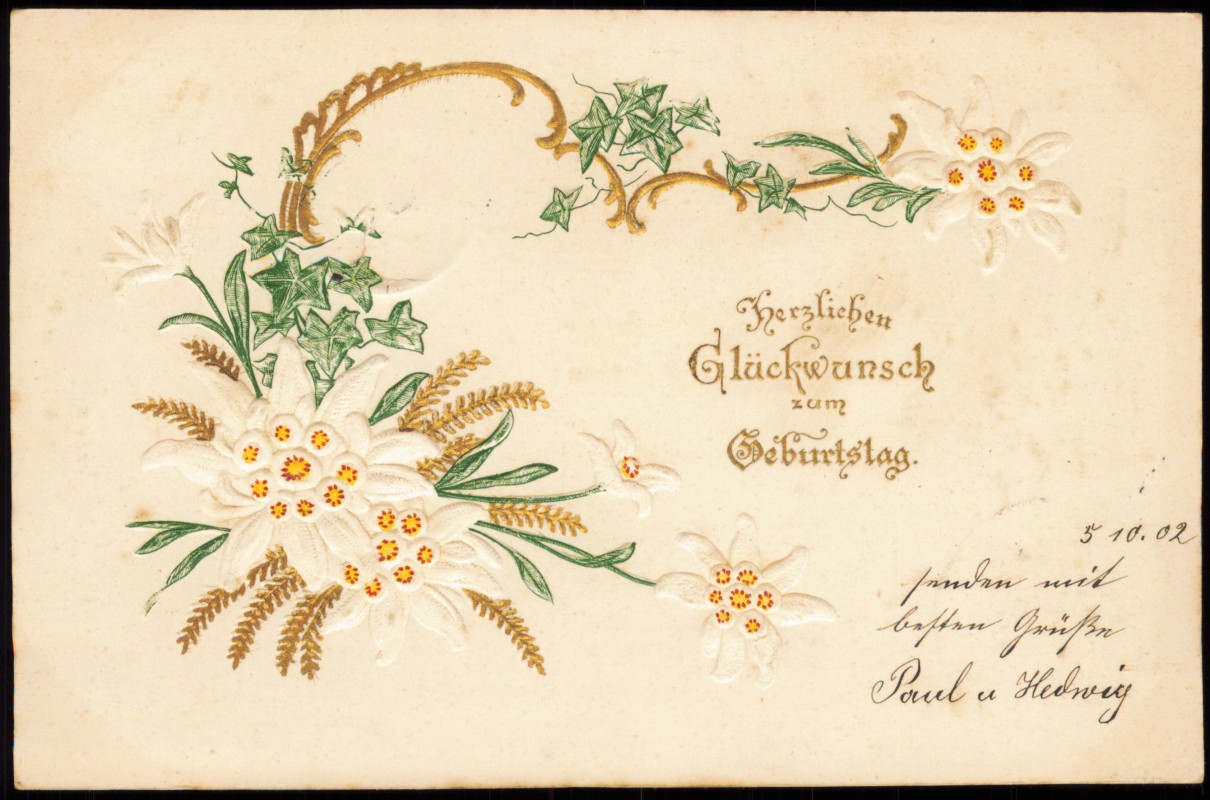 Herzlichen
Glückwunsch
zum
Geburtstag.
5 10. 02
senden mit
besten Grüße
Paul u Hedwig